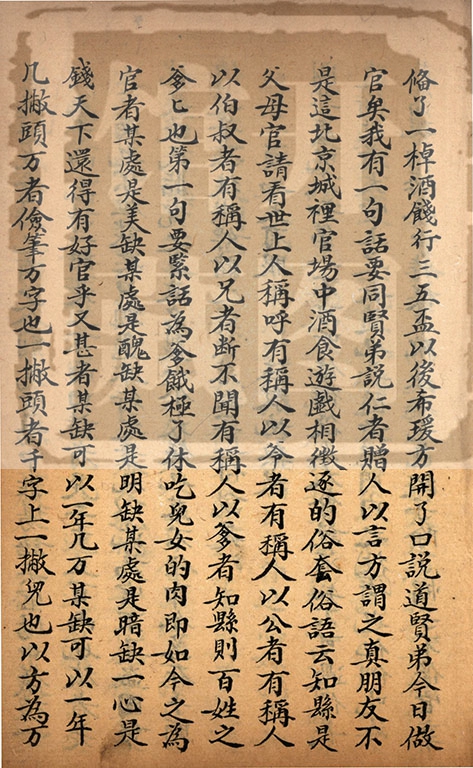 俻了一棹酒餞行三五盃以後希瑗方開了口説道賢弟今日做
官矣我有一句話要同賢弟説仁者贈人以言方謂之真朋友不
是這北京城裡官塲中酒食遊戯相徵逐的俗套俗語云知縣是
父母官請看世上人稱呼有稱人以爷者有稱人以公者有稱人
以伯叔者有稱人以兄者断不聞有稱人以爹者知縣則百姓之
爹匕也第一句要緊話為爹餓極了休吃兒女的肉即如今之為
官者某處是美缺某處是醜缺某處是明缺某處是暗缺一心是
錢天下還得有好官乎又甚者某缺可以一年几万某缺可以一年
几撇頭万者儉筆万字也一撇頭者千字上一撇兒也以方為万